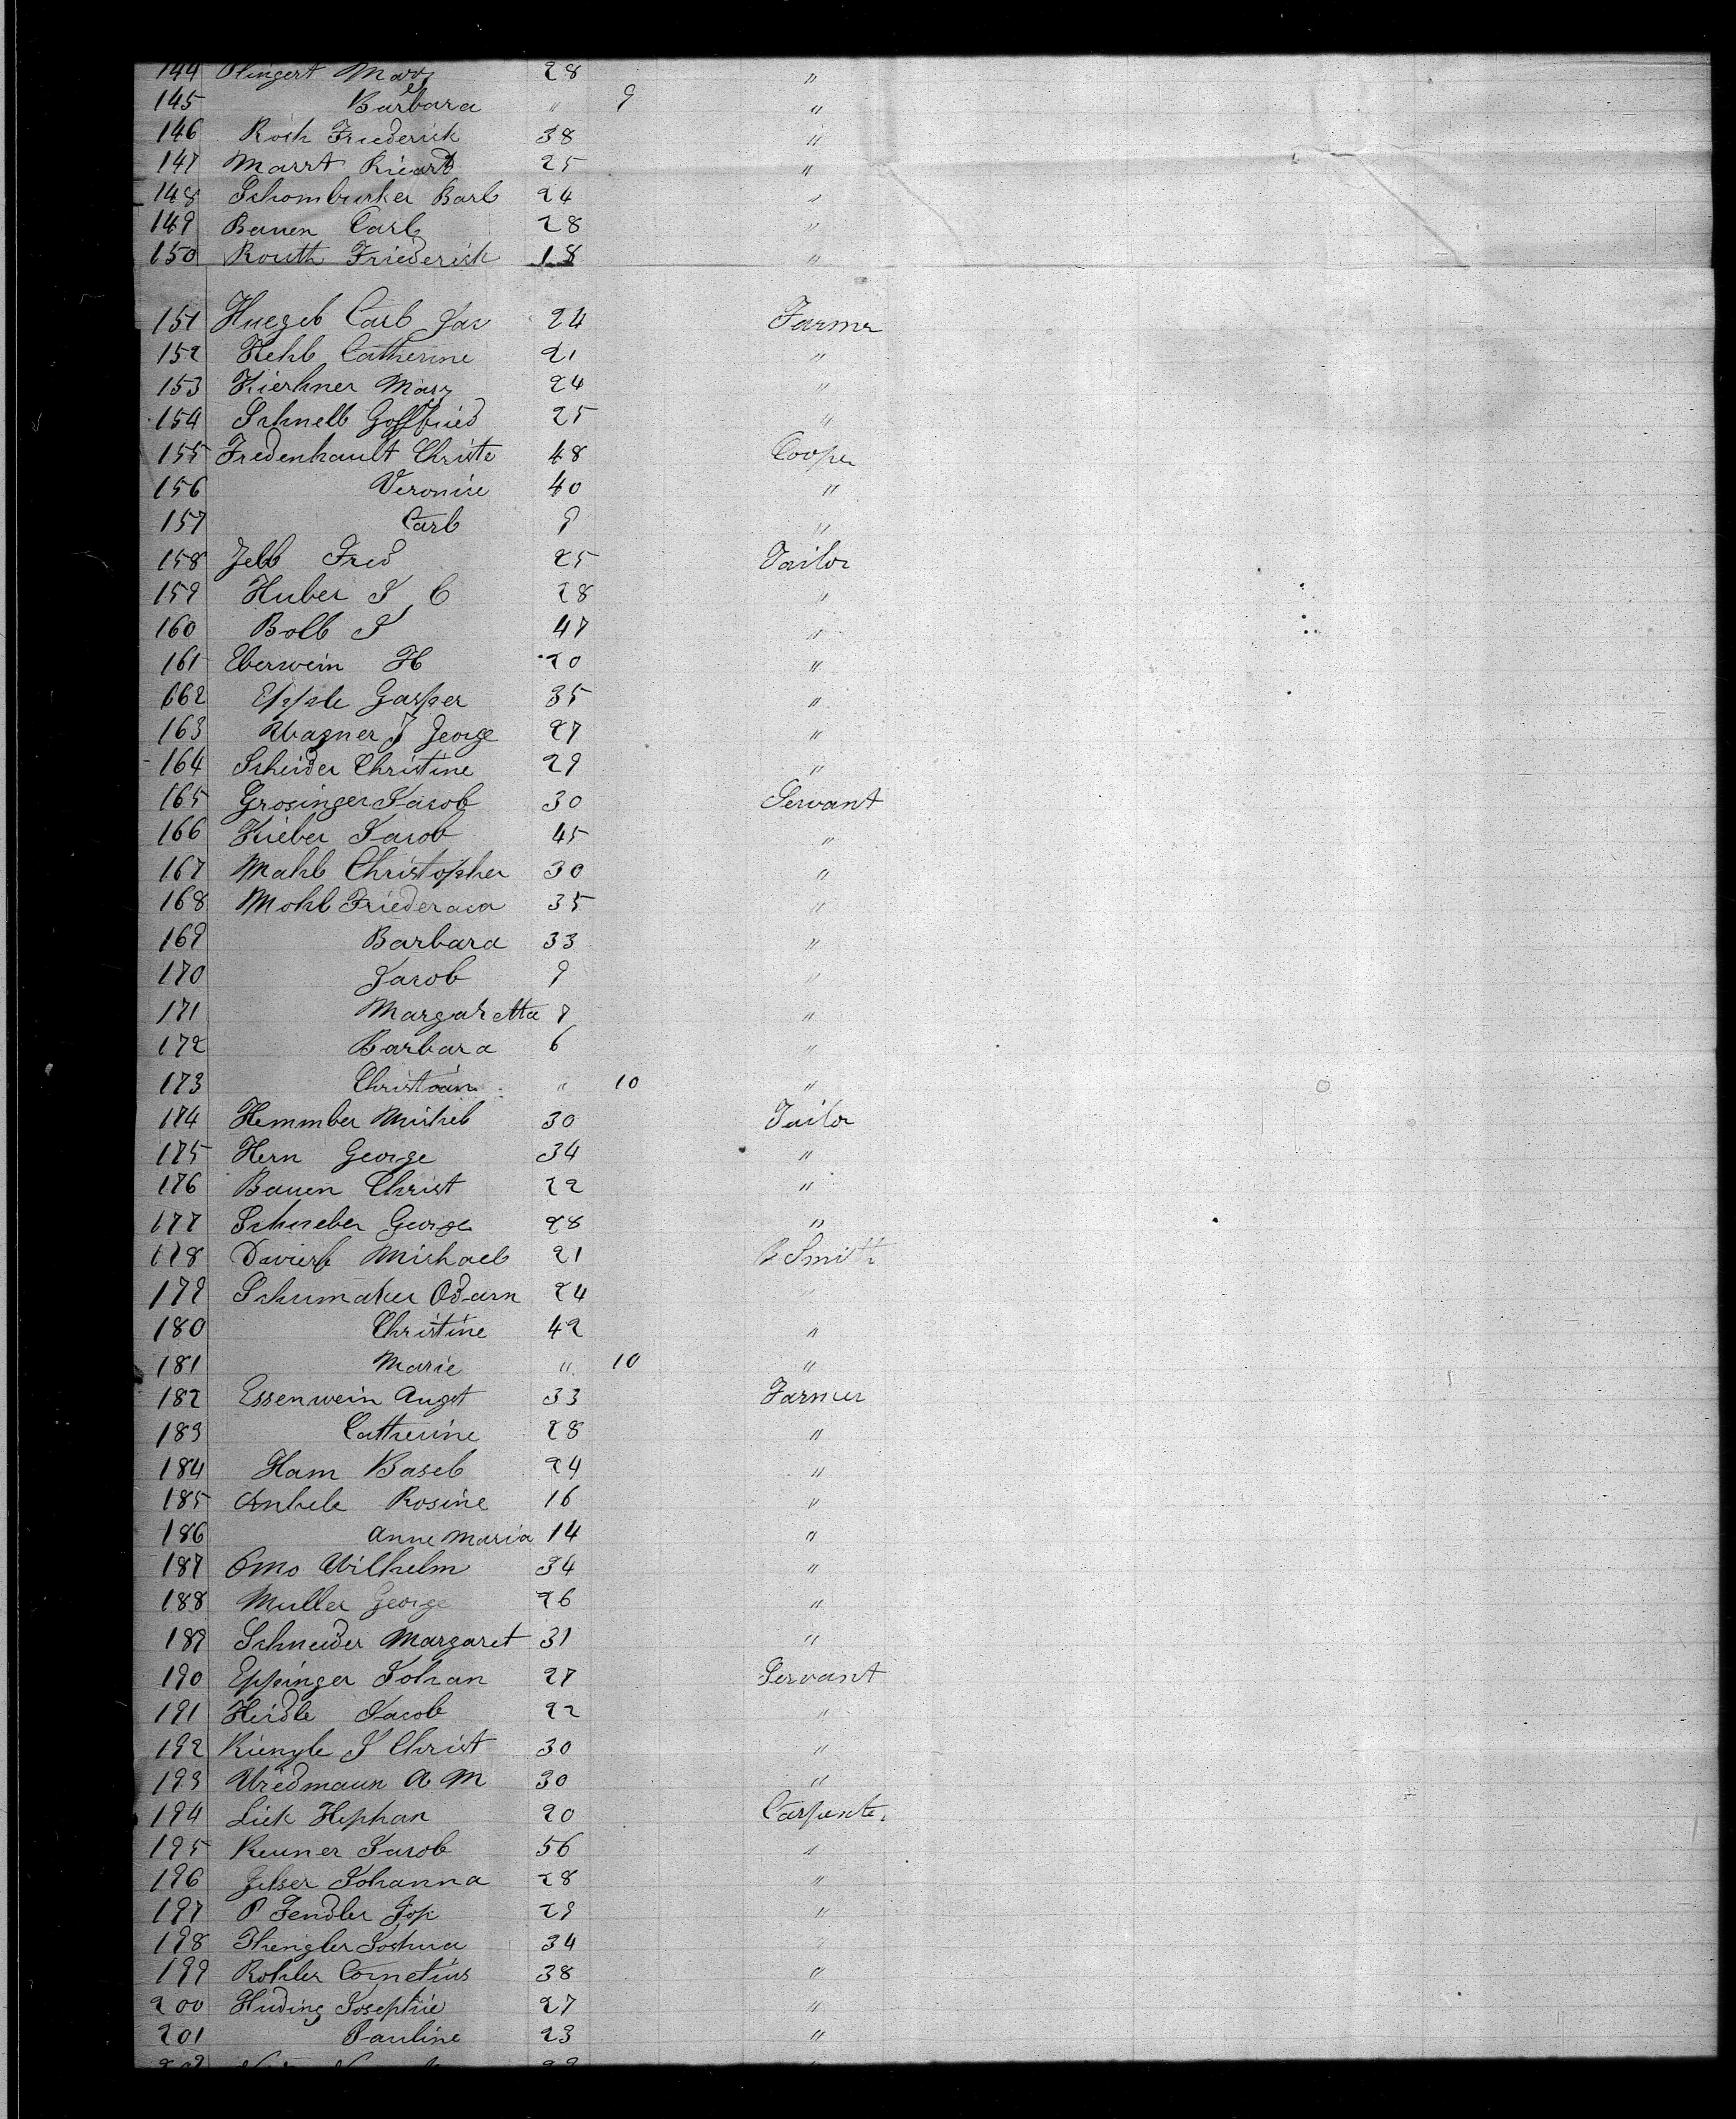 144 Olingert Mary 28 "
145 Barbara " 9 "
146 Rosh Friederick 38 "
147 Marrt Ricard 25 "
148 Schomburker Barb 24 "
149 Bauen Carl 28 "
150 Routh Friederick 18 "
151 Huegeb Carl Jac 24 Farmer
152 Hehl Catherine 21 "
153 Kierhner Mary 24 "
154 Schnell Gottfried 25 "
155 Fredenhault Christe 48 Cooper
156 Veronice 40 "
157 Carl 9 "
158 Jell Fred 25 Tailor
159 Huber J C 28 "
160 Boll J 47 "
161 Eberwein H 20 "
162 Epple Gasper 35 "
163 Wagner J George 27 "
164 Scheider Christine 29 "
165 Grosinger Jacob 30 Servant
166 Kieber Jacob 45 "
167 Mahl Christopher 30 "
168 Mohl Friederaca 35 "
169 Barbara 33 "
170 Jacob 9 "
171 Margaretta 7 "
172 Barbara 6 "
173 Christian " 10 "
174 Hemmber Michel 30 Tailor
175 Hern George 34 "
176 Bauen Christ 22 "
177 Schneber George 28 "
178 Michael 21 B Smith
179 Schumaker Odarn 24 "
180 Christine 42 "
181 Marie " 10 "
182 Essenwein Augst 33 Farmer
183 Catherine 28 "
184 Ham Basel 24 "
185 Anhele Rosine 16 "
186 Anne Maria 14 "
187 Omo Wilhelm 34 "
188 Muller George 26 "
189 Schneider Margaret 31 "
190 Eppinger Johan 27 Servant
191 Heidle Jacob 22 "
192 Kiengle J Christ 30 "
193 Wiedmaun A M 30 "
194 Liek Hephan 20 Carpenter
195 Reuner Jacob 56 "
196 Gelser Johanna 28 "
197 P Fendler Jop 29 "
198 Thengler Joshua 34 "
199 Rohler Cornelius 38 "
200 Huding Josephie 27 "
201 Pauline 23 "